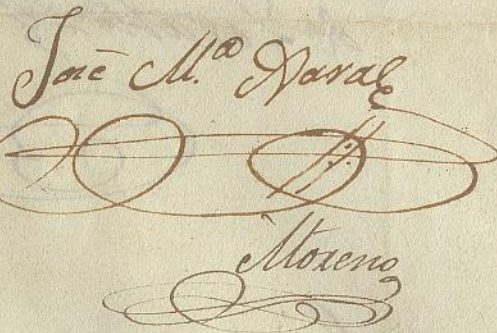 José M.ª Naval
Moreno